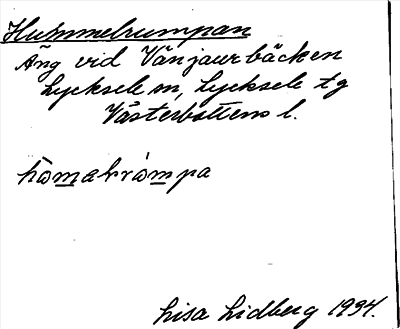 Hummelrumpan
Äng vid Vänjaurbäcken
Lycksele sn, Lycksele tg
Västerbottens l.
hòmalròmpa
Lisa Lidberg 1934.